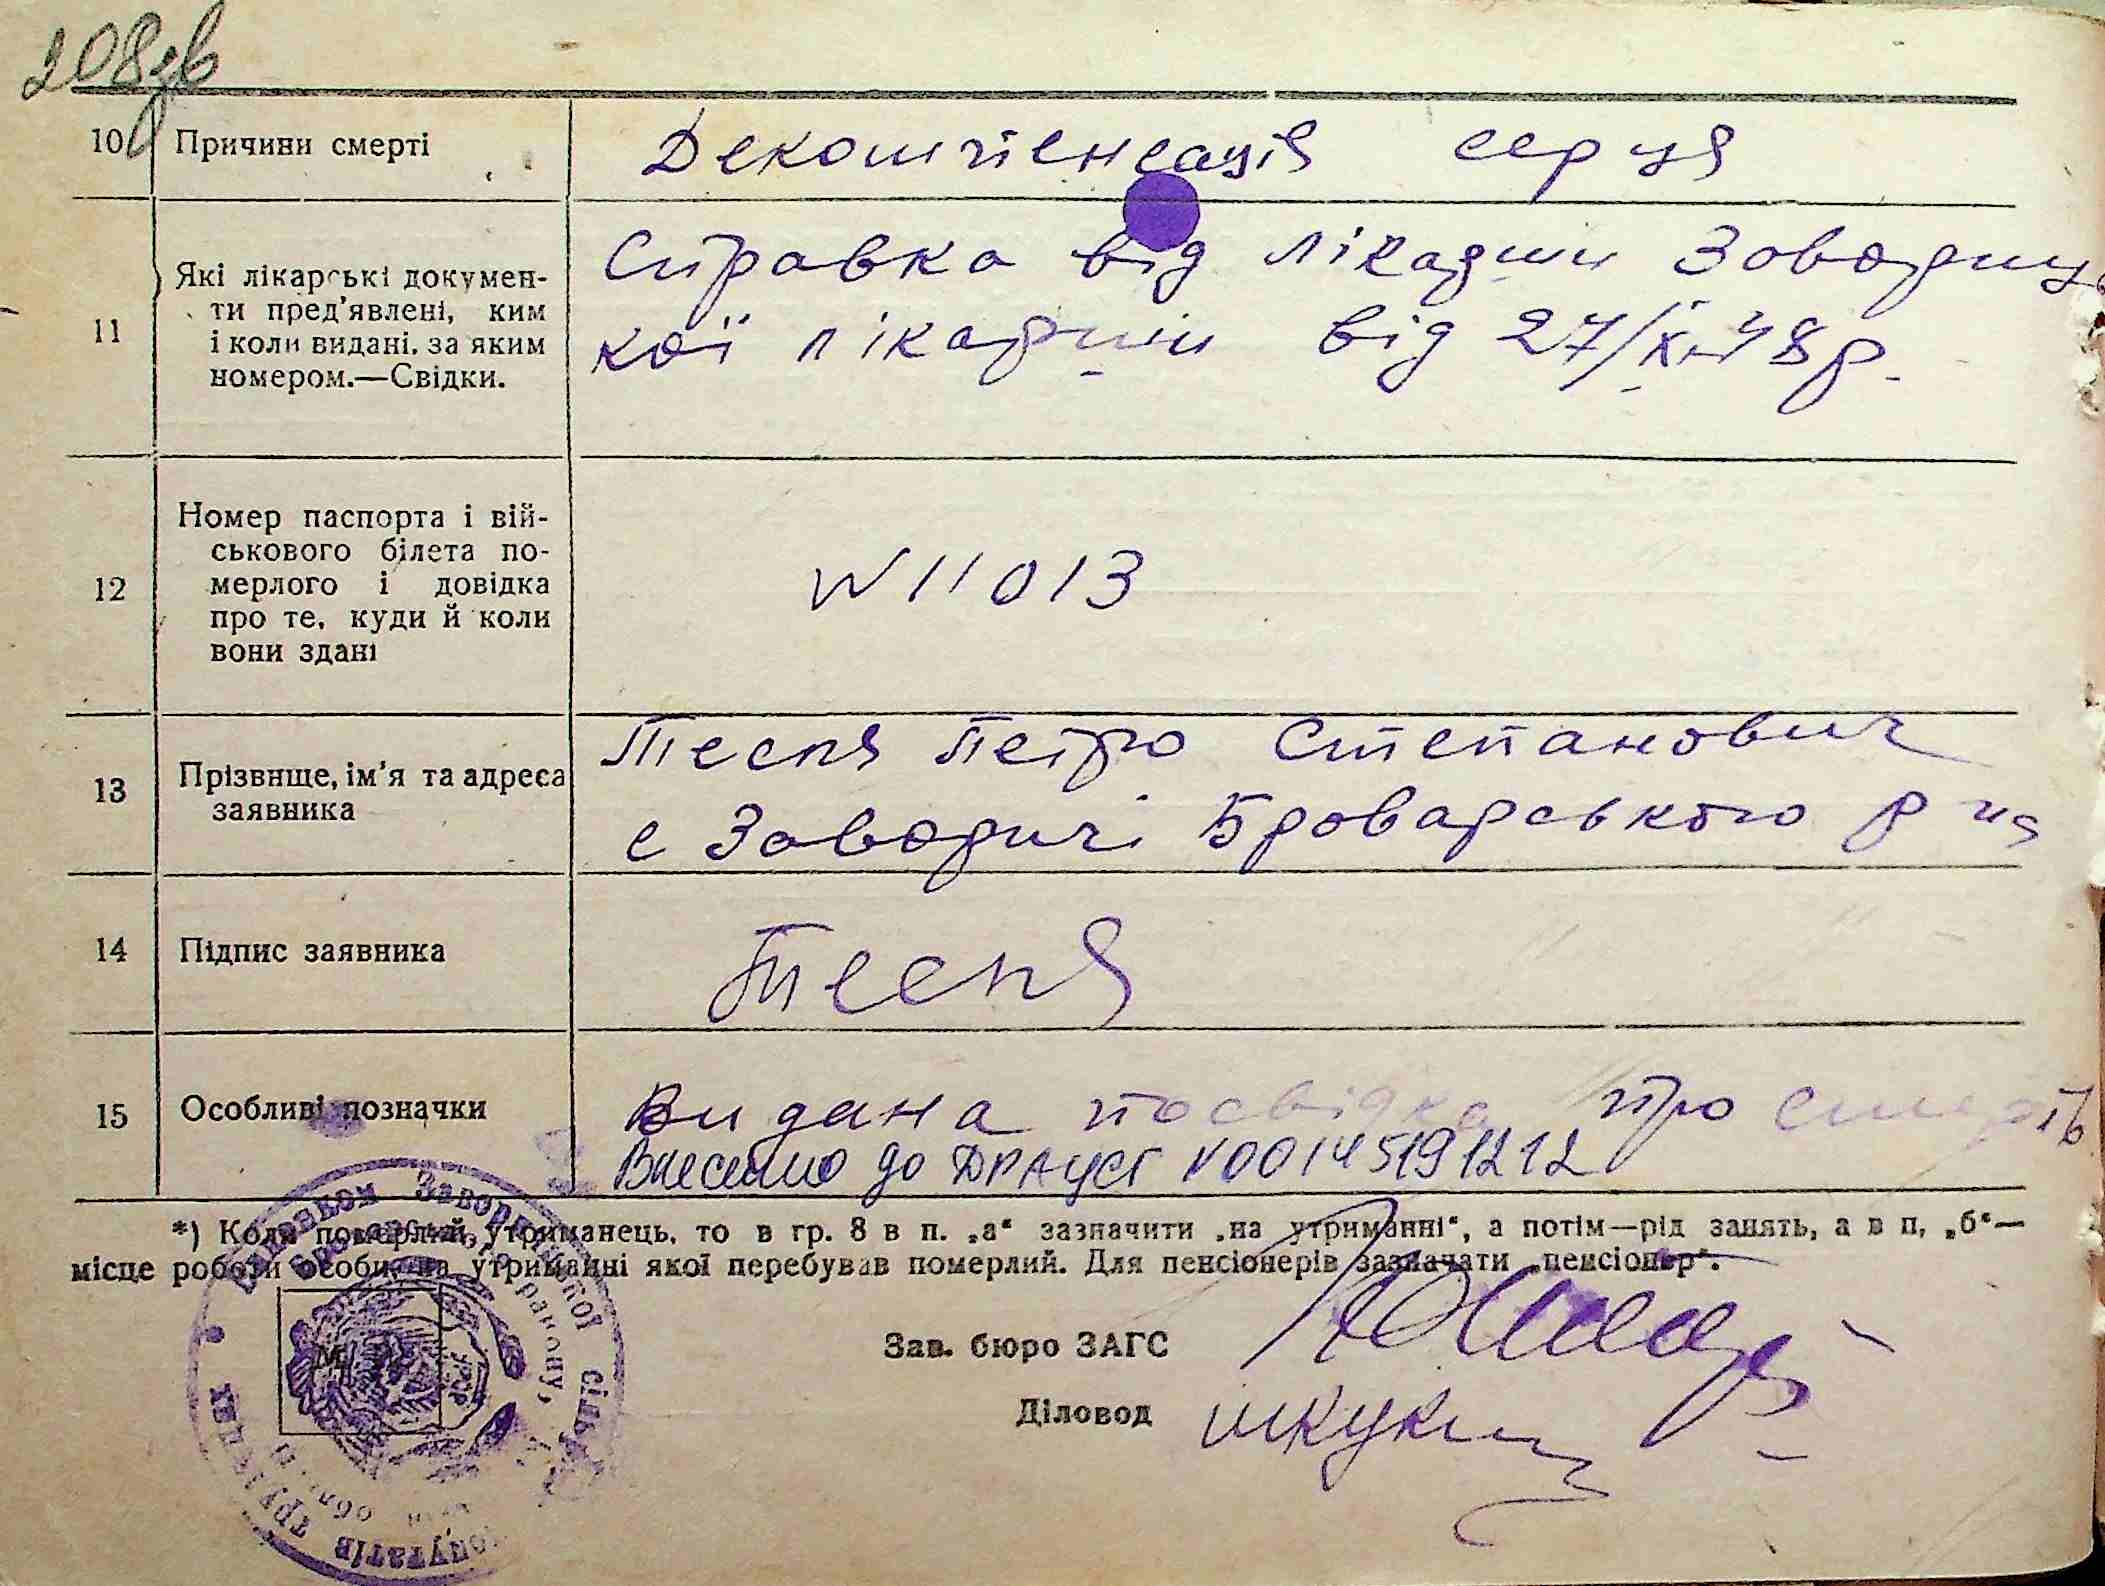 208зв
10 Причини смерті Декомпенсація серця
11 Які лікарські докумен-
ти пред'явлені, ким
і коли видані, за яким
номером.—Свідки.
Справка від лікарши Заворицької лікарши від 27/
48р.
12 Номер паспорта і вій-
ськового білета по-
мерлого і довідка
про те, куди й коли
вони здані
N 11013
13 Прізвище, ім'я та адреса
заявника
Тесля Петро Степанович
с Заворичі Броварського р на
14 Підпис заявника Тесля
15 Особливі позначки Видана посвідка про смерть
Внесено до ДРАЦСГ №00145191212
*) Коли померлий утриманець, то в гр. 8 в п. „а“ зазначити „на утриманні“, а потім—рід занять, а в п. „б“—
місце роботи особи, на утриманні якої перебував померлий. Для пенсіонерів зазначати „пенсіонер“.
Виконком Заворицької сіль
депутатів трудящих
Броварського району,
обл.
М
Зав. бюро ЗАГС
Діловод